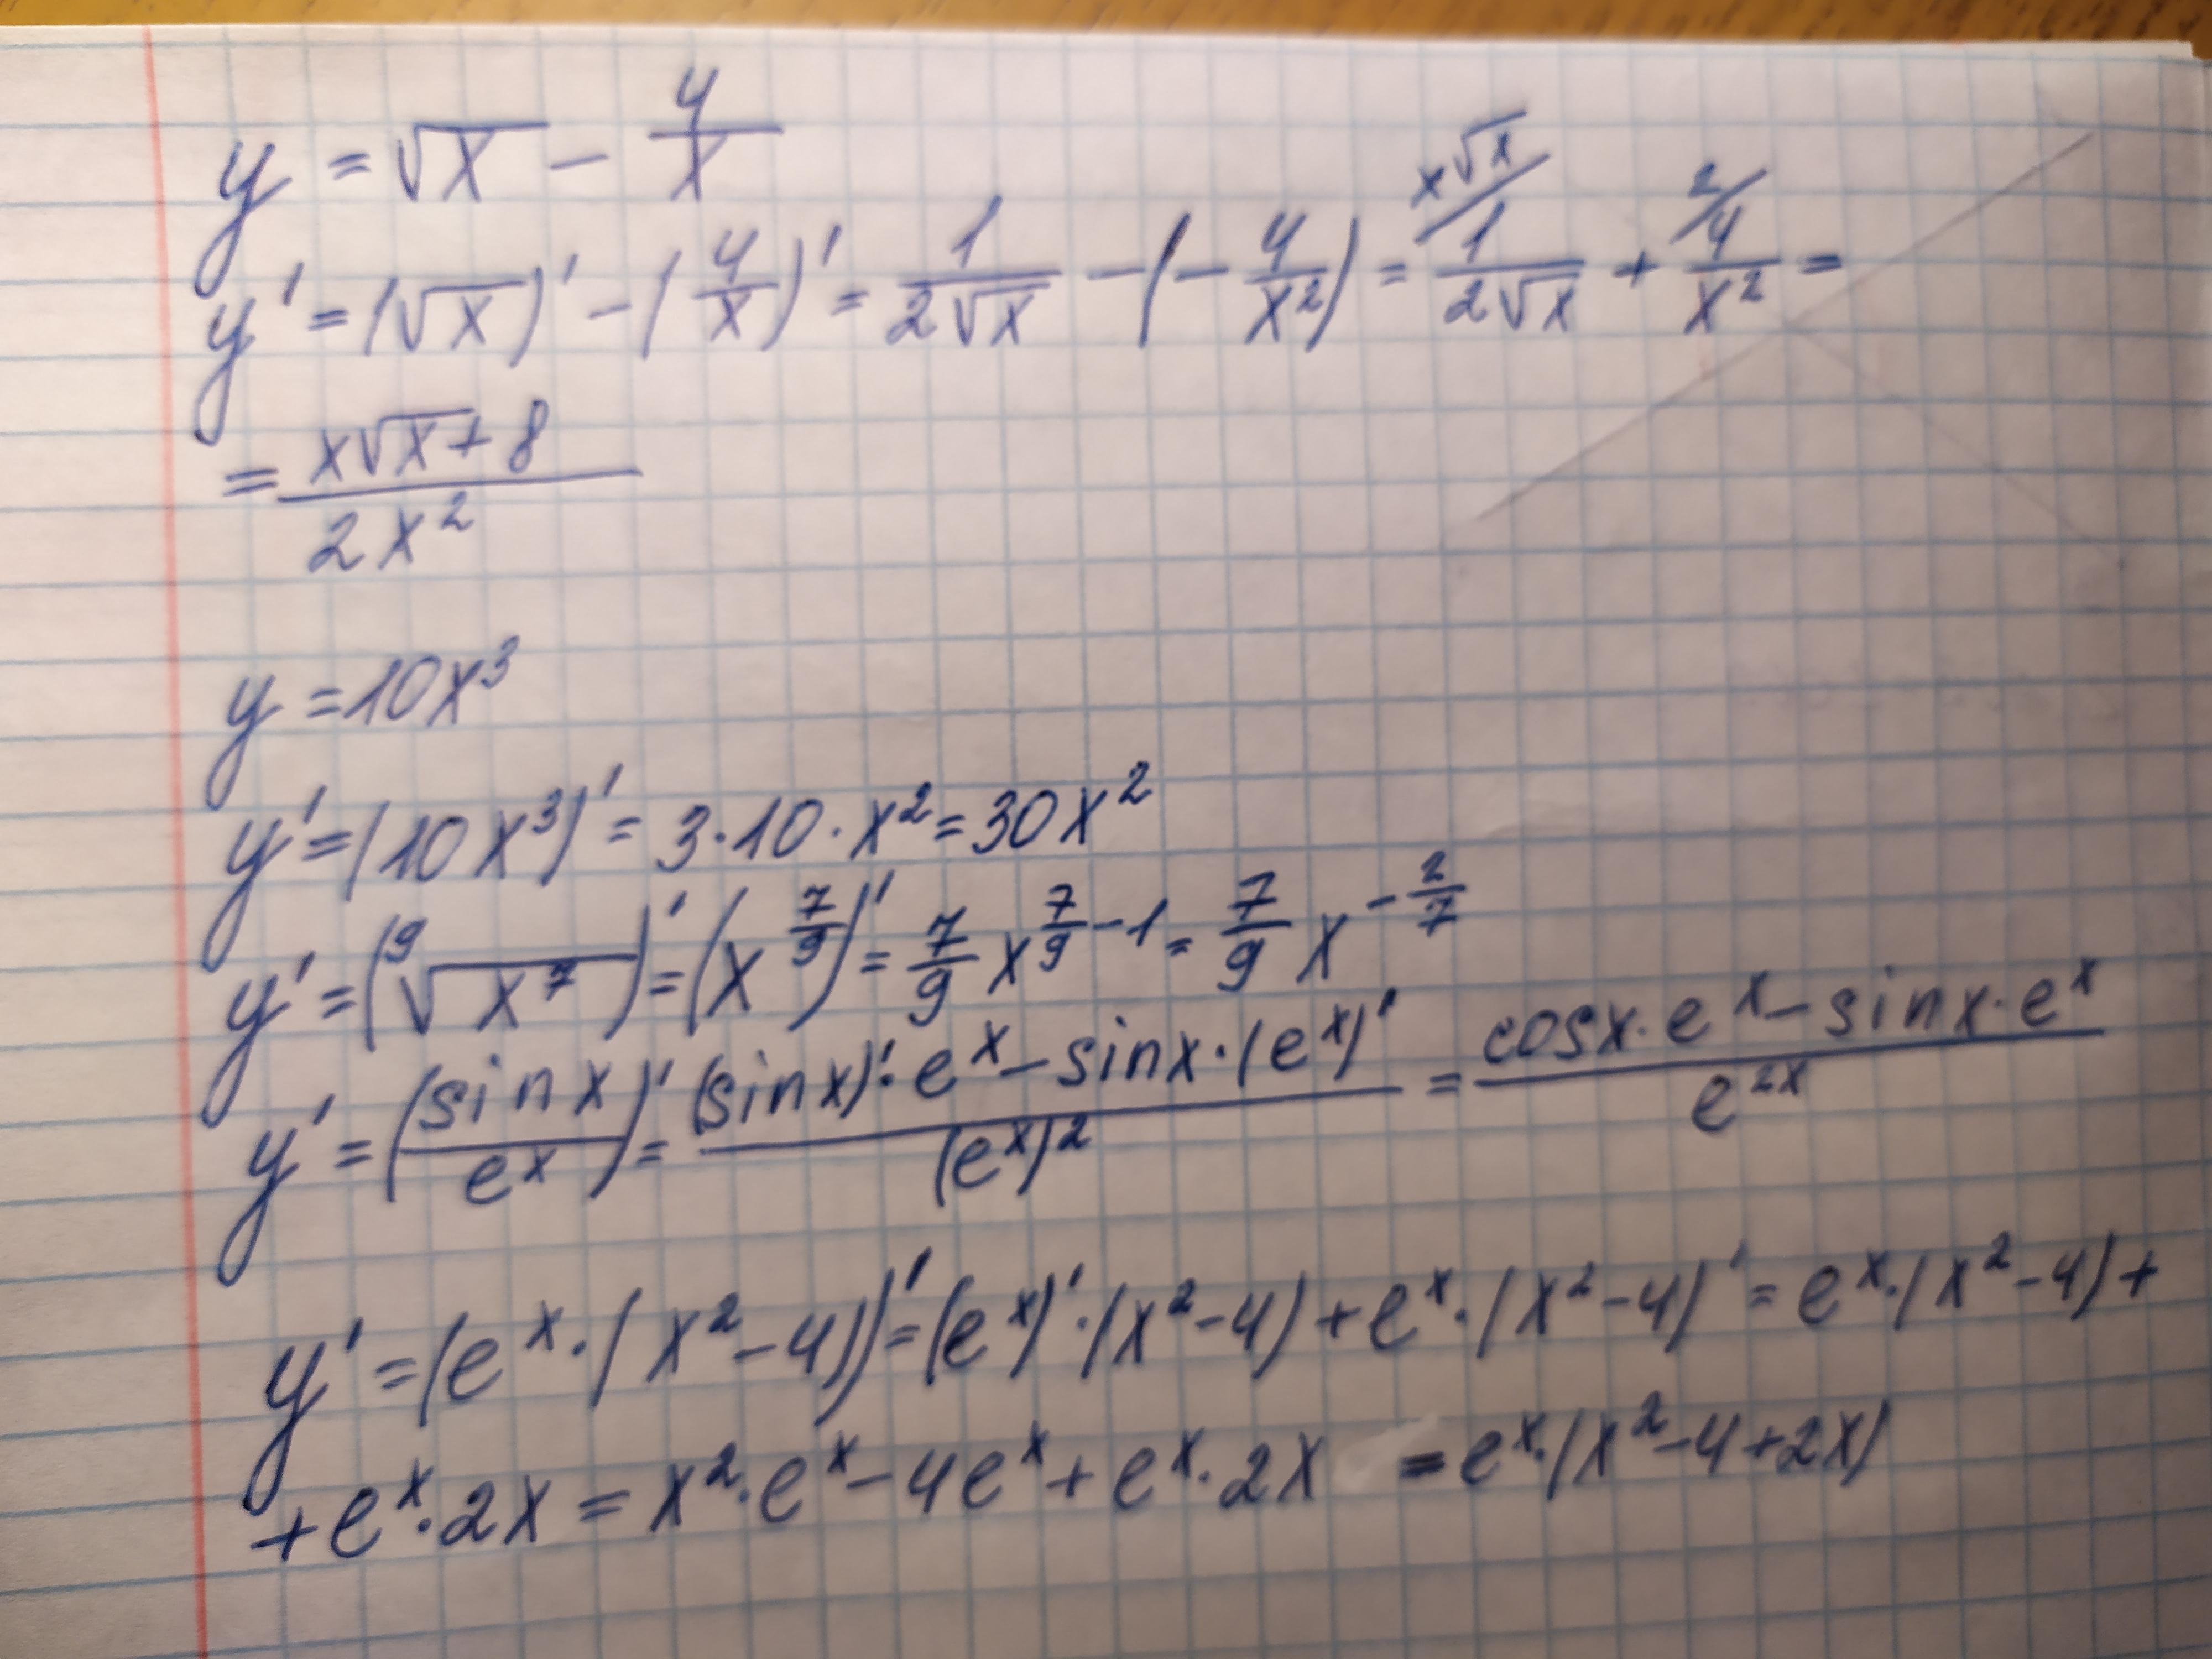 y = √x − 4/x
y' = (√x)' − (4/x)' = 1/(2√x) − (− 4/x²) = x√x/ 1/(2√x) + 2/ 4/x² =
= (x√x + 8)/(2x²)
y = 10x³
y' = (10x³)' = 3·10·x² = 30x²
y' = (⁹√x⁷)' = (x^(7/9))' = 7/9 x^(7/9 − 1) = 7/9 x^(−2/7)
y' = (sinx/e^x)' = ((sinx)'·e^x − sinx·(e^x)')/(e^x)² = (cosx·e^x − sinx·e^x)/e^(2x)
y' = (e^x·(x²−4))' = (e^x)'·(x²−4) + e^x·(x²−4)' = e^x·(x²−4) +
+ e^x·2x = x²·e^x − 4e^x + e^x·2x = e^x·(x²−4+2x)